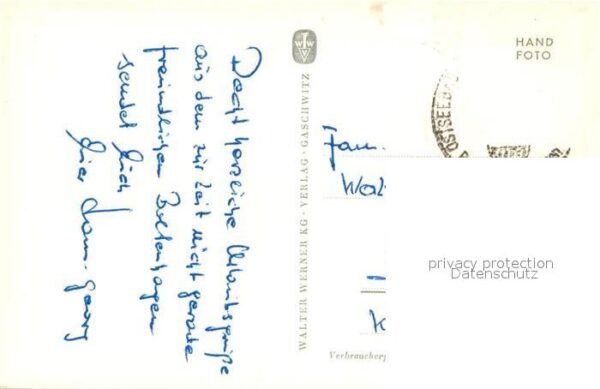 Recht herzliche Urlaubsgrüße
aus dem zur Zeit nicht gerade
freundlichen Boltenhagen
sendet Euch
Euer Hans-Georg
WALTER WERNER KG · VERLAG · GASCHWITZ
HAND
FOTO
OSTSEEBAD
Fam.
Wal
K
privacy protection
Datenschutz
Verbraucherp